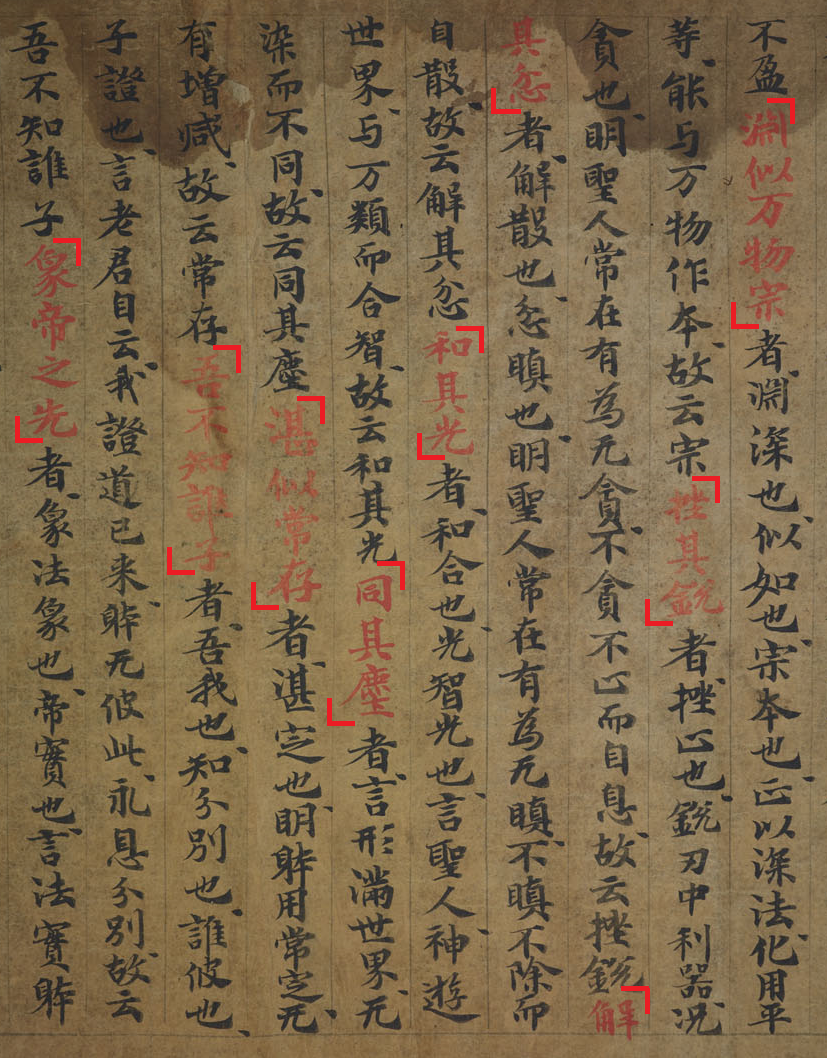 不盈淵似万物宗者淵深也似如也宗本也正以深法化用平
等能与万物作本故云宗挫其銳者挫止也銳刃中利器况
貪也明聖人常在有為无貪不貪不止而自息故云挫銳解
其忿者解散也忿瞋也明聖人常在有為无瞋不瞋不除而
自散故云解其忿和其光者和合也光智光也言聖人神遊
世界与万類而合智故云和其光同其塵者言形滿世界无
染而不同故云同其塵湛似常存者湛定也明躰用常定无
有增减故云常存吾不知誰子者吾我也知分別也誰彼也
子證也言老君自云我證道已来躰无彼此永息分別故云
吾不知誰子象帝之先者象法象也帝寳也言法寳躰